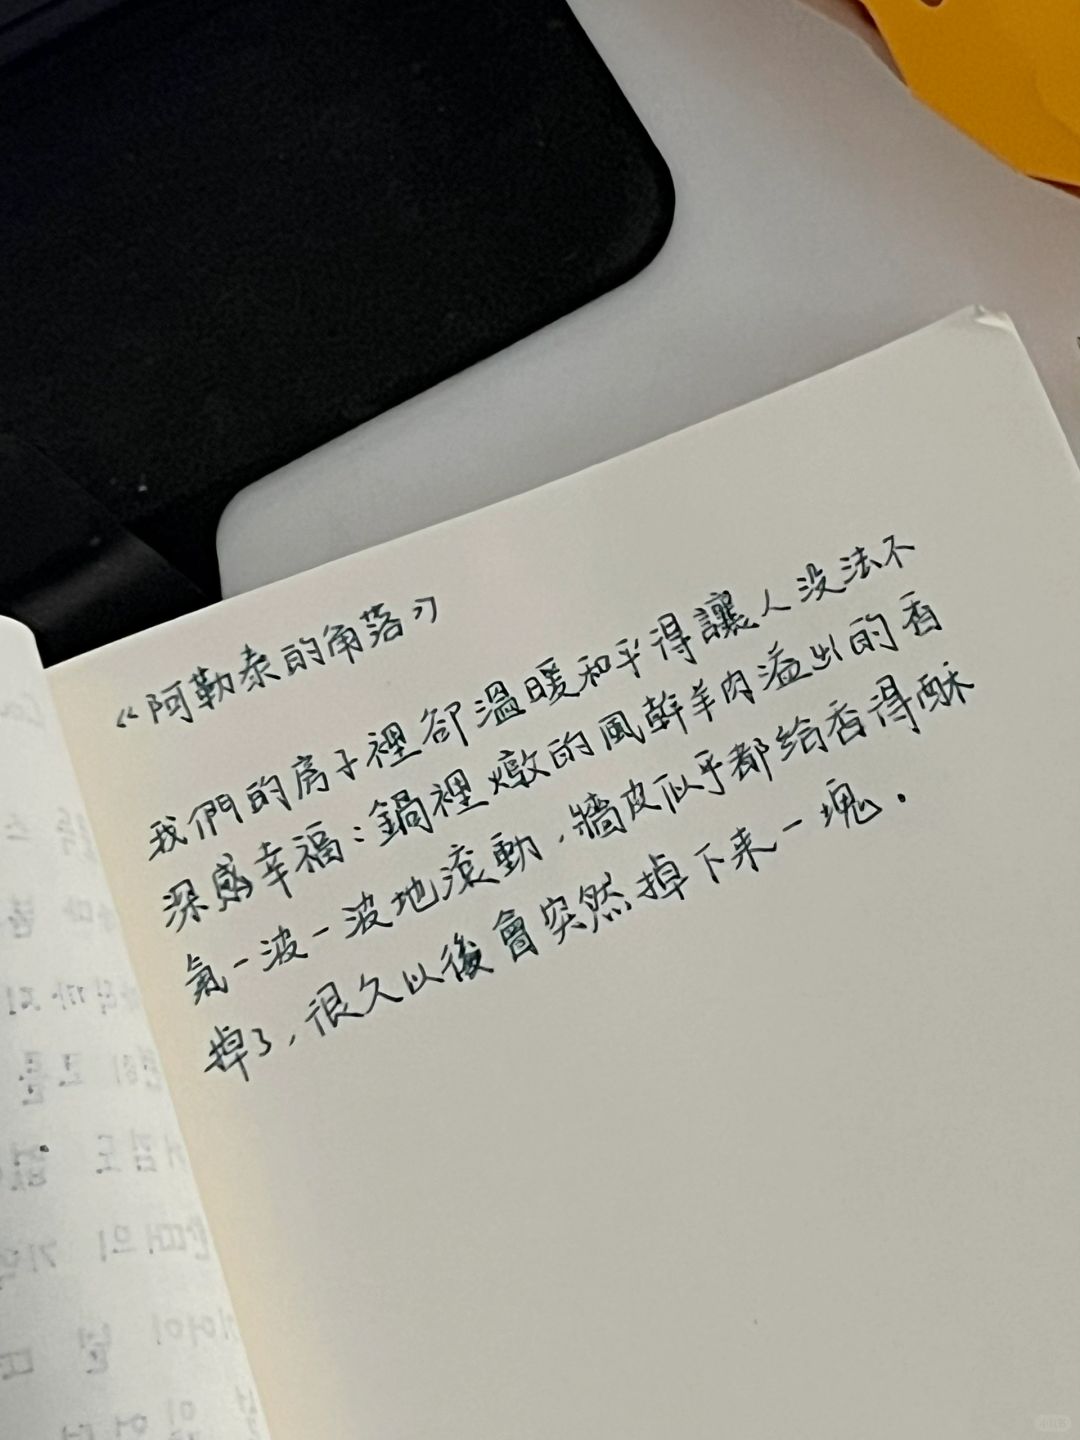 《阿勒泰的角落》
我們的房子裡卻溫暖和平得讓人沒法不
深感幸福：鍋裡燉的風幹羊肉溢出的香
氣一波一波地滾動，牆皮似乎都給香得酥
掉了，很久以後會突然掉下来一塊．